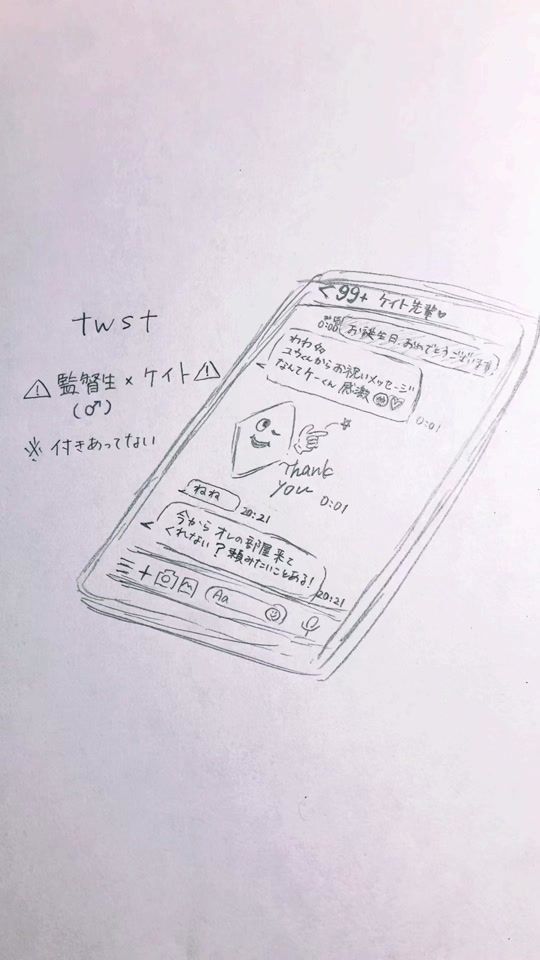 twst
⚠監督生×ケイト⚠
(♂)
※付きあってない
<99+ ケイト先輩
0:00 お誕生日、おめでとうございます
わわ
ユウくんからお祝いメッセージ
なんてけーくん感激
0:01
Thank
you
0:01
ねね
20:21
今からオレの部屋来て
くれない?頼みたいことある!
20:21
Aa